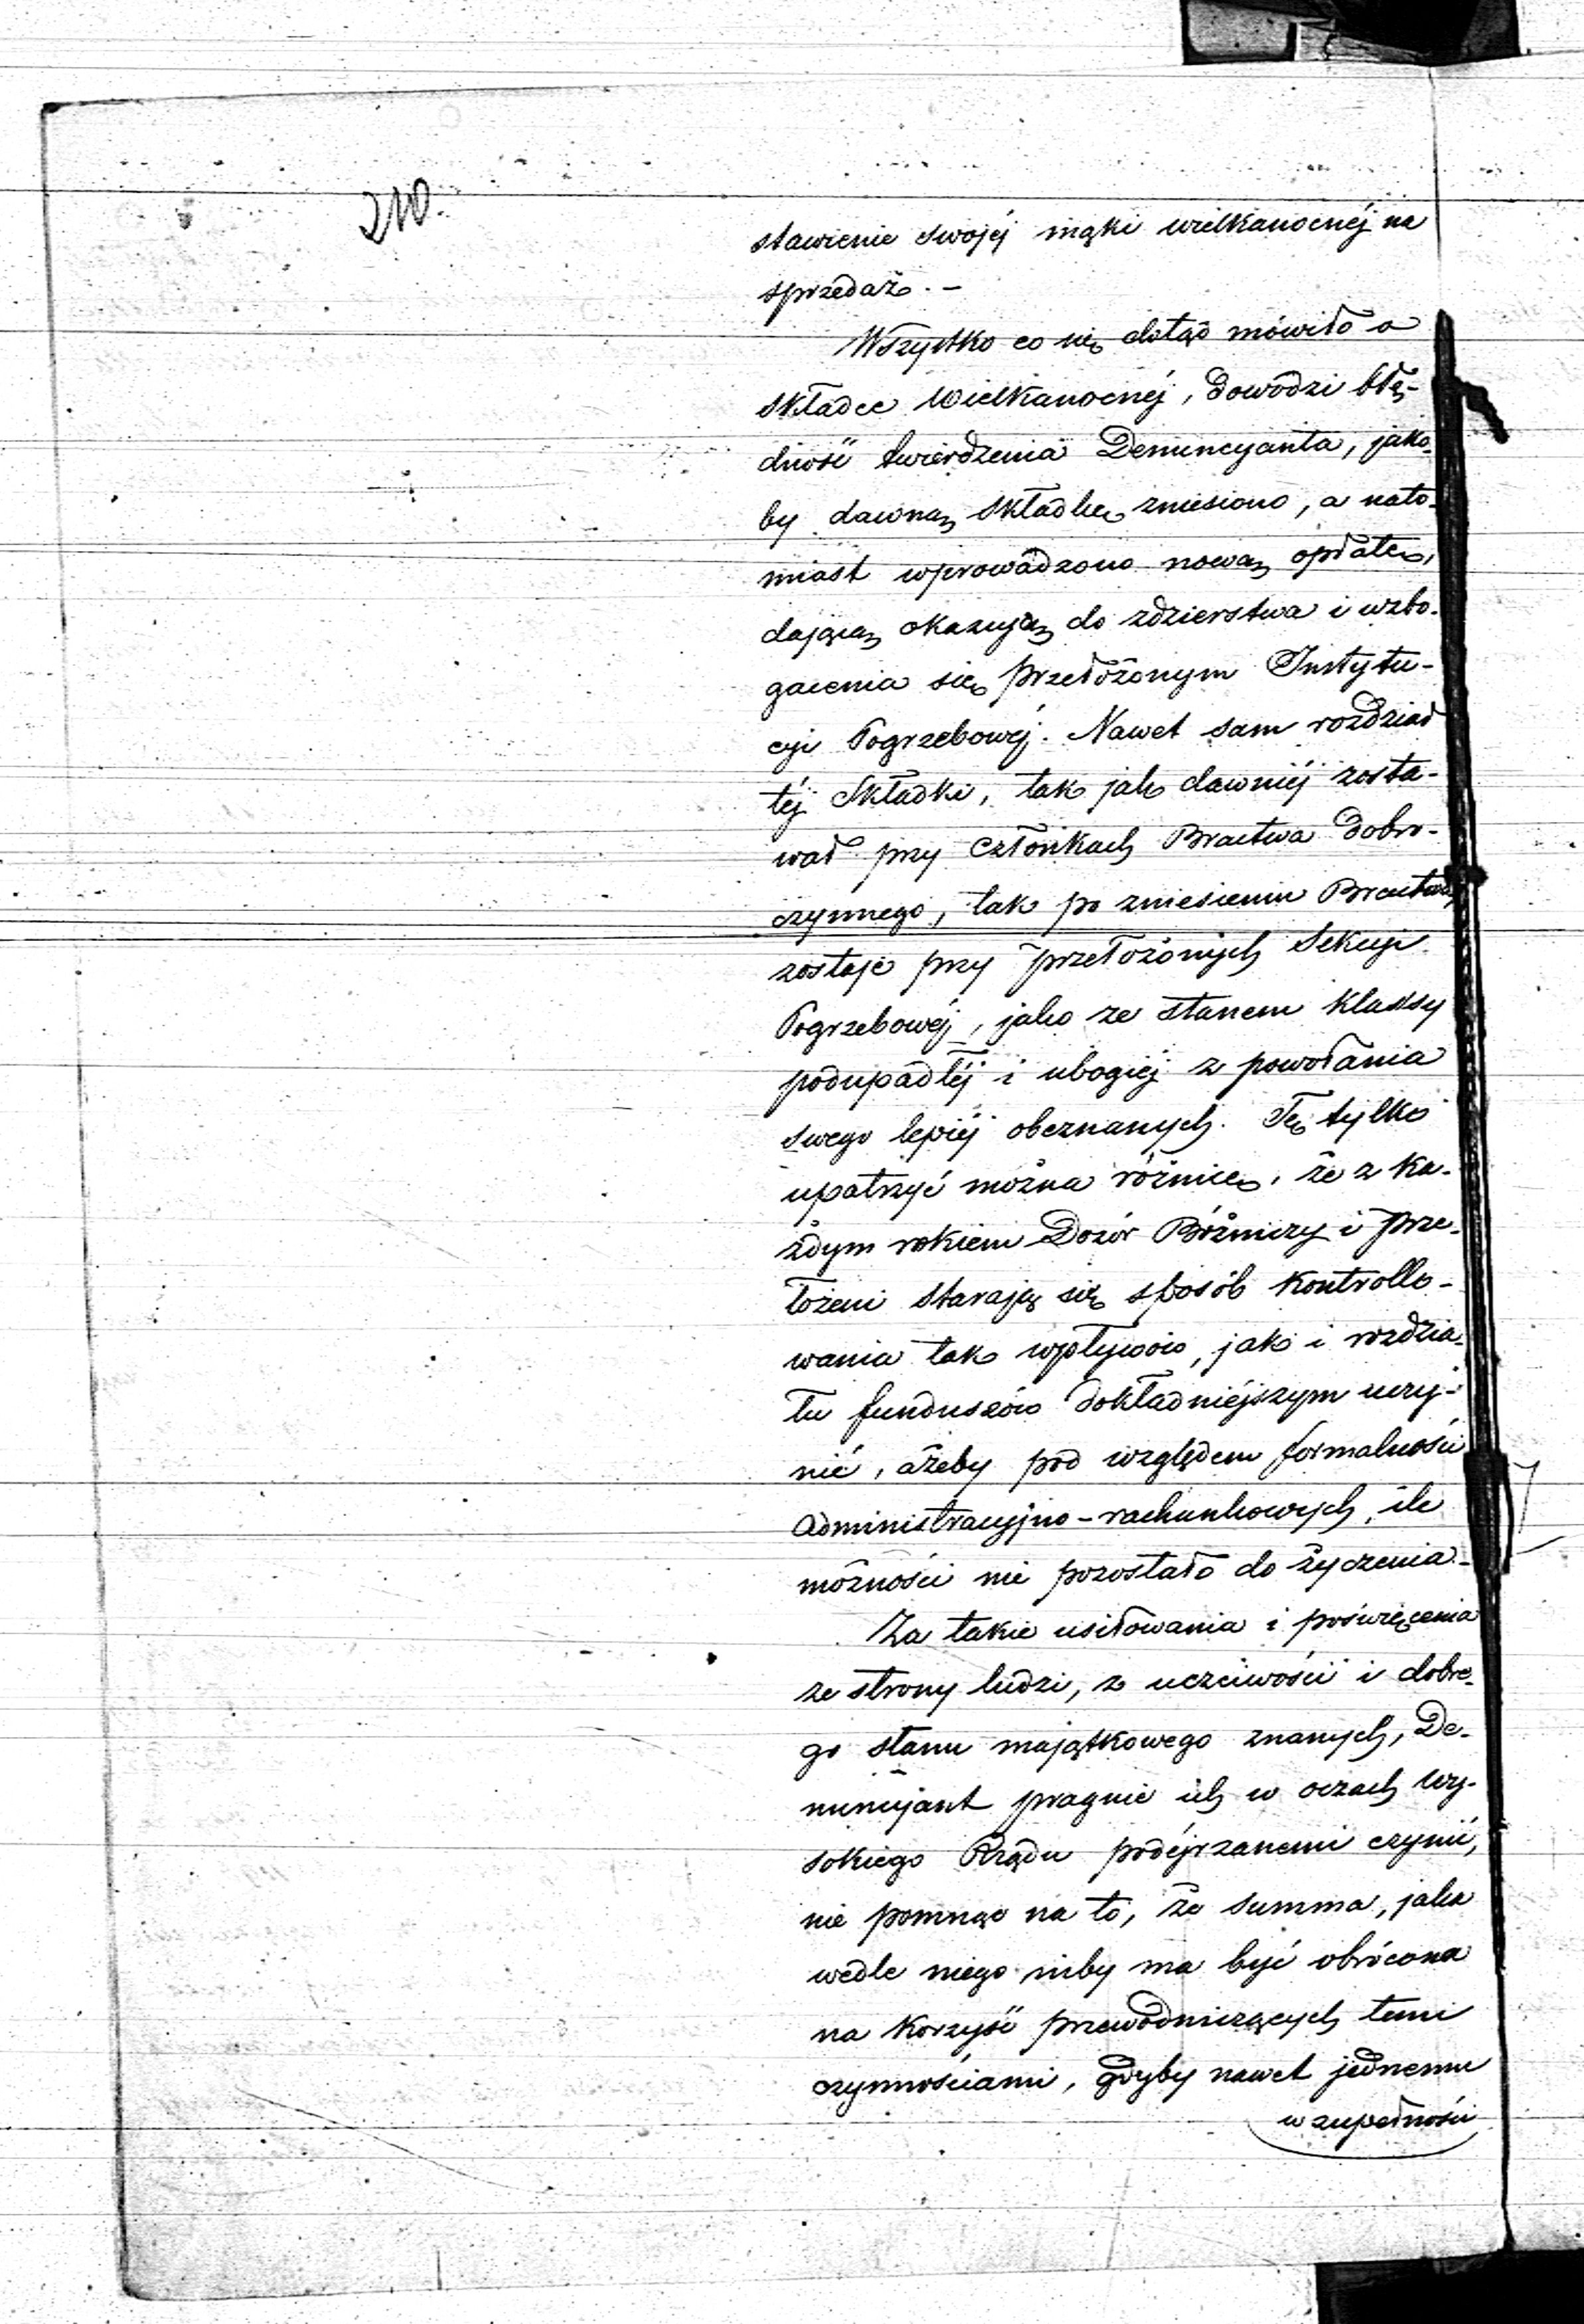 210.
stawienie swojéj mąki wielkanocnéj na
sprzedaż. –
Wszystko co się dotąd mówiło o
składce Wielkanocnéj, dowodzi błę-
dność twierdzenia Denuncyanta, jako-
by dawną składkę zniesiono, a nato-
miast wprowadzono nową opłatę,
dającą okazyą do zdzierstwa i wzbo-
gacenia się przełożonym Instytu-
cyi Pogrzebowéj. Nawet sam rozdział
téj składki, tak jak dawniéj zosta-
wał przy członkach Bractwa Dobro-
czynnego, tak po zniesieniu Bractwa,
zostaje przy przełożonych Sekcyi
Pogrzebowéj, jako ze stanem klassy
podupadłéj i ubogiéj z powołania
swego lepiéj obeznanych. Tę tylko
upatrzyć można różnicę, że z ka-
żdym rokiem Dozór Bóżniczy i prze-
łożeni starają się sposób kontrollo-
wania tak wpływów, jak i rozdzia-
łu funduszów dokładniéjszym uczy-
nić, ażeby pod względem formalności
administracyjno-rachunkowych, ile
możności nie pozostało do życzenia. –
Za takie usiłowania i poświęcenia
ze strony ludzi, z uczciwości i dobre-
go stanu majątkowego znanych, De-
nuncyant pragnie ich w oczach Wy-
sokiego Rządu podéjrzanemi czynić,
nie pomnąc na to, że summa, jaka
wedle niego niby ma być obrócona
na korzyść przewodniczących temi
czynnościami, gdyby nawet jednemu
w zupełności